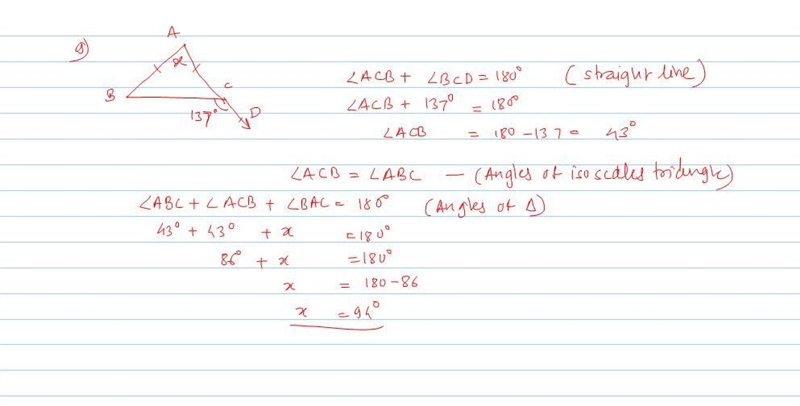 9)
A
x
B
C
137°
D
∠ACB + ∠BCD = 180° (straight line)
∠ACB + 137° = 180°
∠ACB = 180 - 137 = 43°
∠ACB = ∠ABC — (Angles of isoscales triangle)
∠ABC + ∠ACB + ∠BAC = 180° (Angles of Δ)
43° + 43° + x = 180°
86° + x = 180°
x = 180 - 86
x = 94°